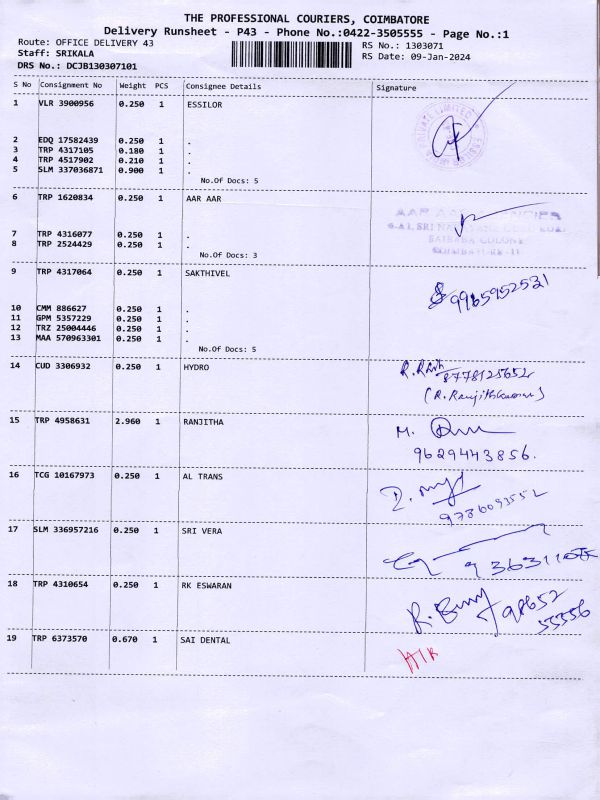 THE PROFESSIONAL COURIERS, COIMBATORE
Delivery Runsheet - P43 - Phone No.:0422-3505555 - Page No.:1
Route: OFFICE DELIVERY 43 RS No.: 1303071
Staff: SRIKALA RS Date: 09-Jan-2024
DRS No.: DCJB130307101
S No Consignment No Weight PCS Consignee Details Signature
1 VLR 3900956 0.250 1 ESSILOR
2 EDQ 17582439 0.250 1 .
3 TRP 4317105 0.180 1 .
4 TRP 4517902 0.210 1 .
5 SLM 337036871 0.900 1 .
No.Of Docs: 5
6 TRP 1620834 0.250 1 AAR AAR
7 TRP 4316077 0.250 1 .
8 TRP 2524429 0.250 1 .
No.Of Docs: 3
9 TRP 4317064 0.250 1 SAKTHIVEL
9965952531
10 CMM 886627 0.250 1 .
11 GPM 5357229 0.250 1 .
12 TRZ 25004446 0.250 1 .
13 MAA 570963301 0.250 1 .
No.Of Docs: 5
14 CUD 3306932 0.250 1 HYDRO
8778125652
(R. Ranjithkumar)
15 TRP 4958631 2.960 1 RANJITHA M.
9629443856.
16 TCG 10167973 0.250 1 AL TRANS
9786093552
17 SLM 336957216 0.250 1 SRI VERA
18 TRP 4310654 0.250 1 RK ESWARAN
98652
55556
19 TRP 6373570 0.670 1 SAI DENTAL